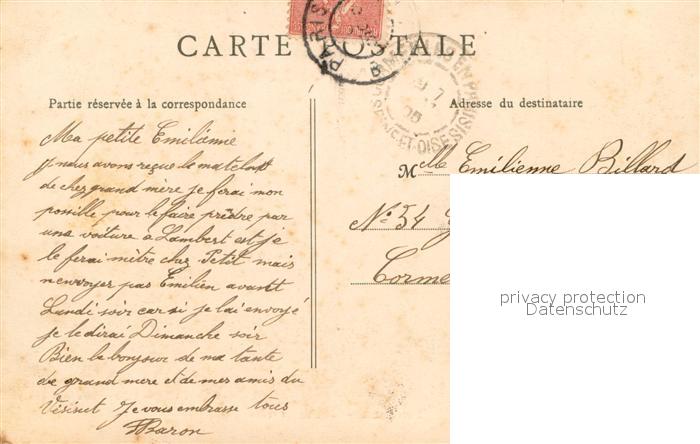 PARIS
CARTE POSTALE
SEINE-ET-OISE
Partie réservée à la correspondance
Adresse du destinataire
Ma petite Emilienne
nous avons reçue le matelas
de chez grand mère je ferai mon
possille pour le faire prendre par
une voiture à Lambert est je
le ferai mètre chez Petit mais
n'envoyez pas Emilien avant
Lundi soir car si je lai envoyé
je le dirai Dimanche soir
Bien le bonjour de ma tante
de grand mere et de mes amis du
Vésinet Je vous embrasse tous
Baron
Mlle Emilienne Billard
No 54
Corme
privacy protection
Datenschutz